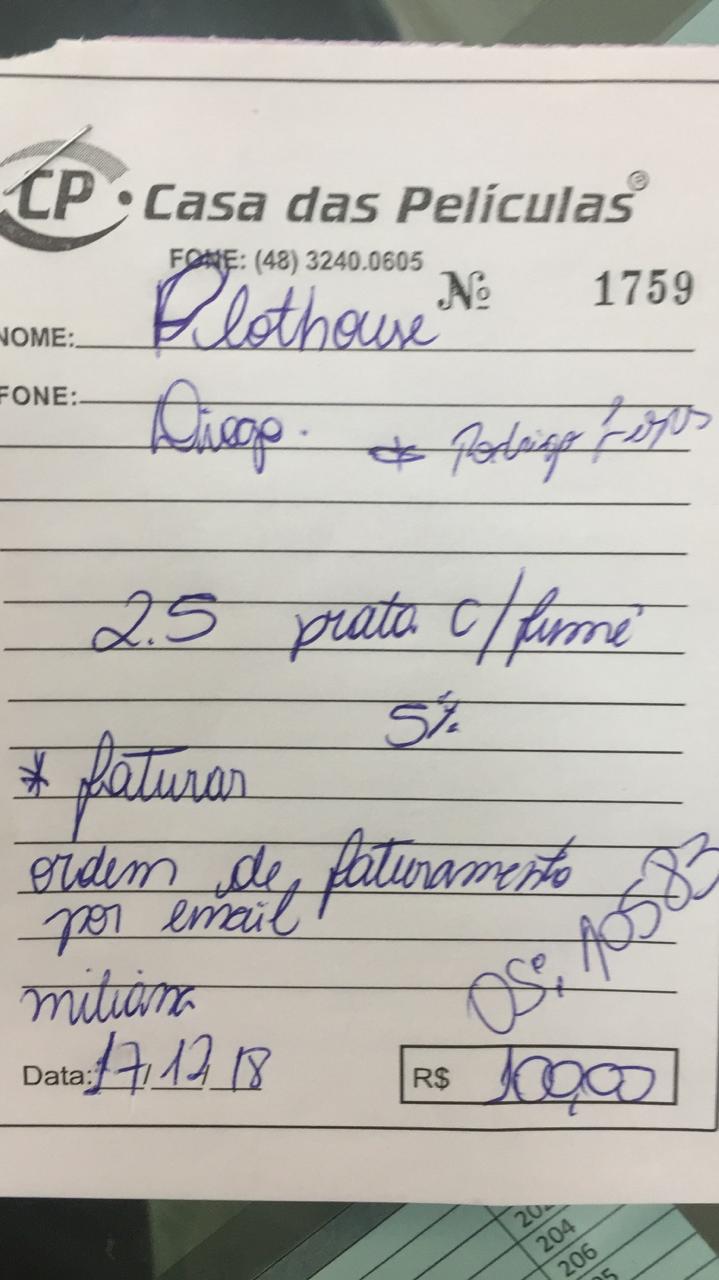 CP • Casa das Películas®
FONE: (48) 3240.0605
Nº 1759
NOME: Plothouse
FONE:
Diogo. * Rodrigo
2.5 prata c/ fumê
5%
* faturar
ordem de faturamento
por email
miliana
OS: 105583
Data: 17/12/18
R$ 100,00
202
204
206